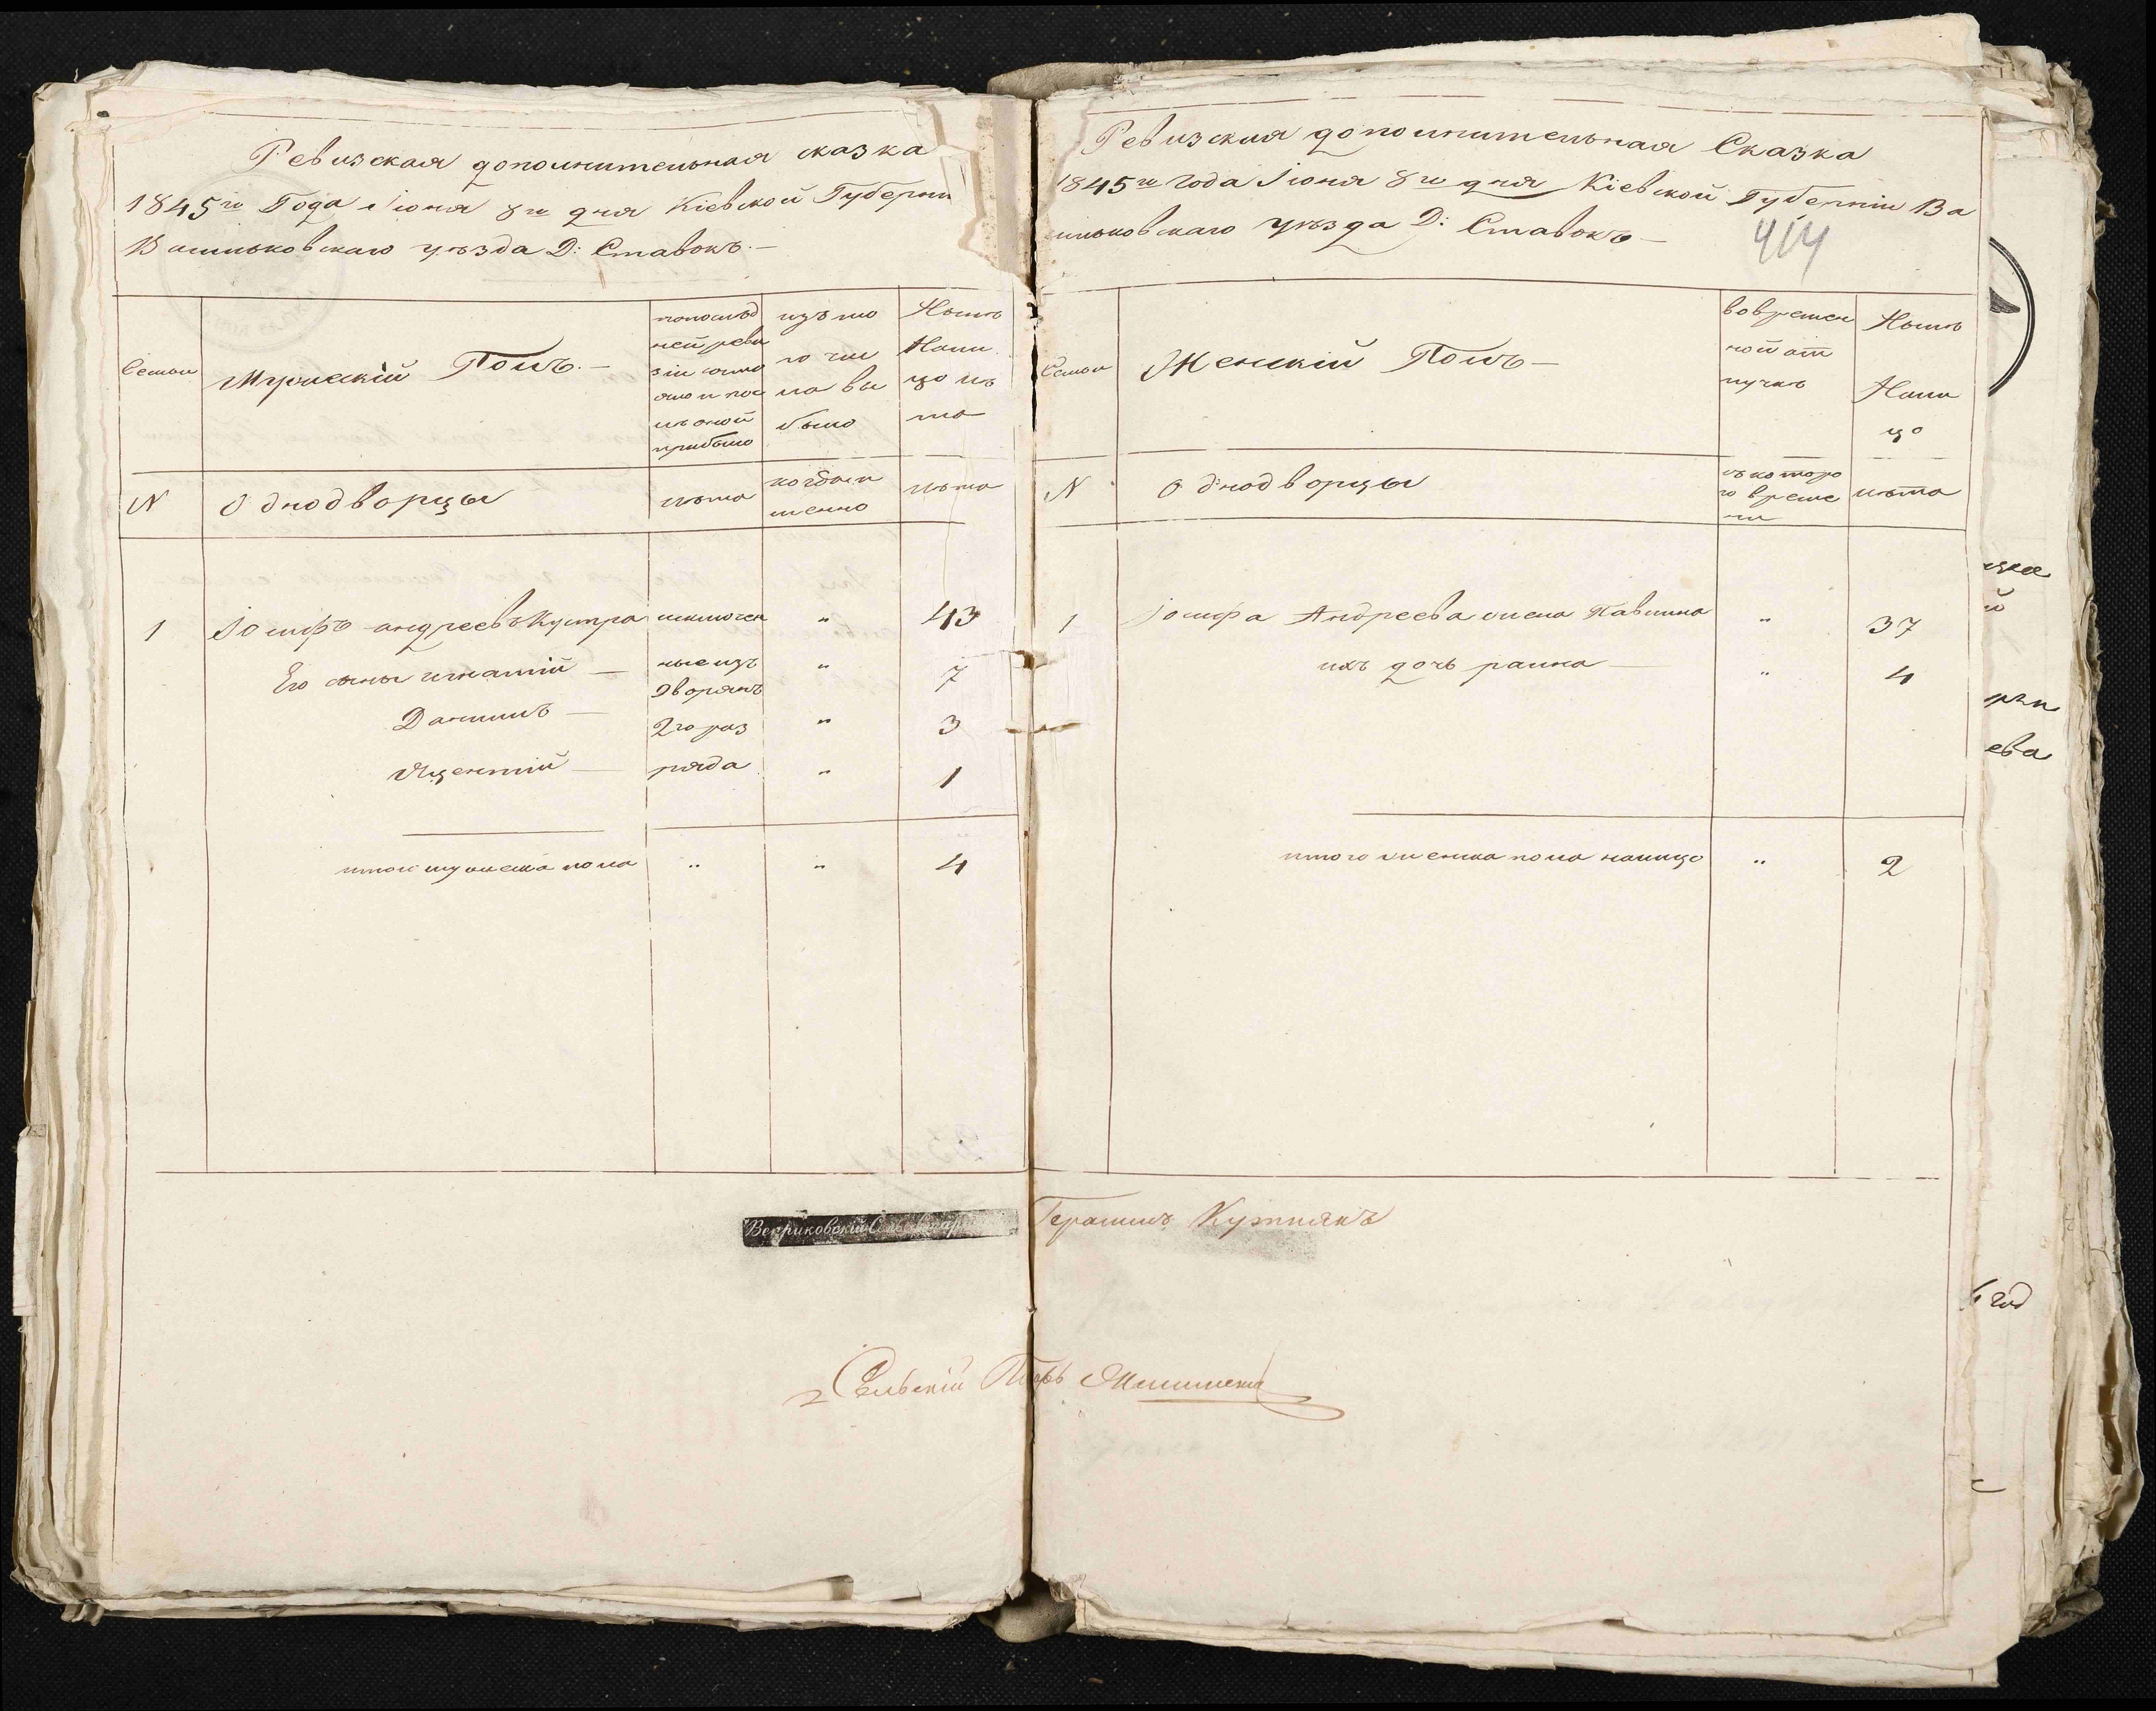 Ревизская дополнительная сказка
1845го Года Июня 8го дня Кіевской Губерни
Васильковскаго уѣзда Д: Ставокъ. —
Семьи
Мужескій Полъ. —
по послѣд
ней реви
зіи состо
яло и пос
лѣ оной
прибыло
изъ то
го чис
ла вы
было
Нынѣ
Нали
цо лѣ
та
N
Однодворцы
лѣта
когда и
менно
лѣта
1
Іосифъ андреевъ Кустра
исключен
"
43
Его сыны игнатій —
ные изъ
"
7
Данилъ —
Дворянъ
2го раз
"
3
Вценьтій —
ряда
"
1
итого мужеска пола
"
"
4
Ревизская дополнительная Сказка
1845го года Іюня 8го дня Кіевской Губерніи Ва
сильковскаго уѣзда Д: Ставокъ —
414
Семьи
Женскій Полъ —
во времен
ной от
лучкѣ
Нынѣ
Нали
цо
N
Однодворцы
съ которо
го време
ни
лѣта
1
Іосифа Андреева жена Павлина
"
37
ихъ дочь раина —
"
4
итого женска пола налицо
"
2
Веприковскій Сель. Стар
Герасимъ
Сельскій Писарь
ева
год